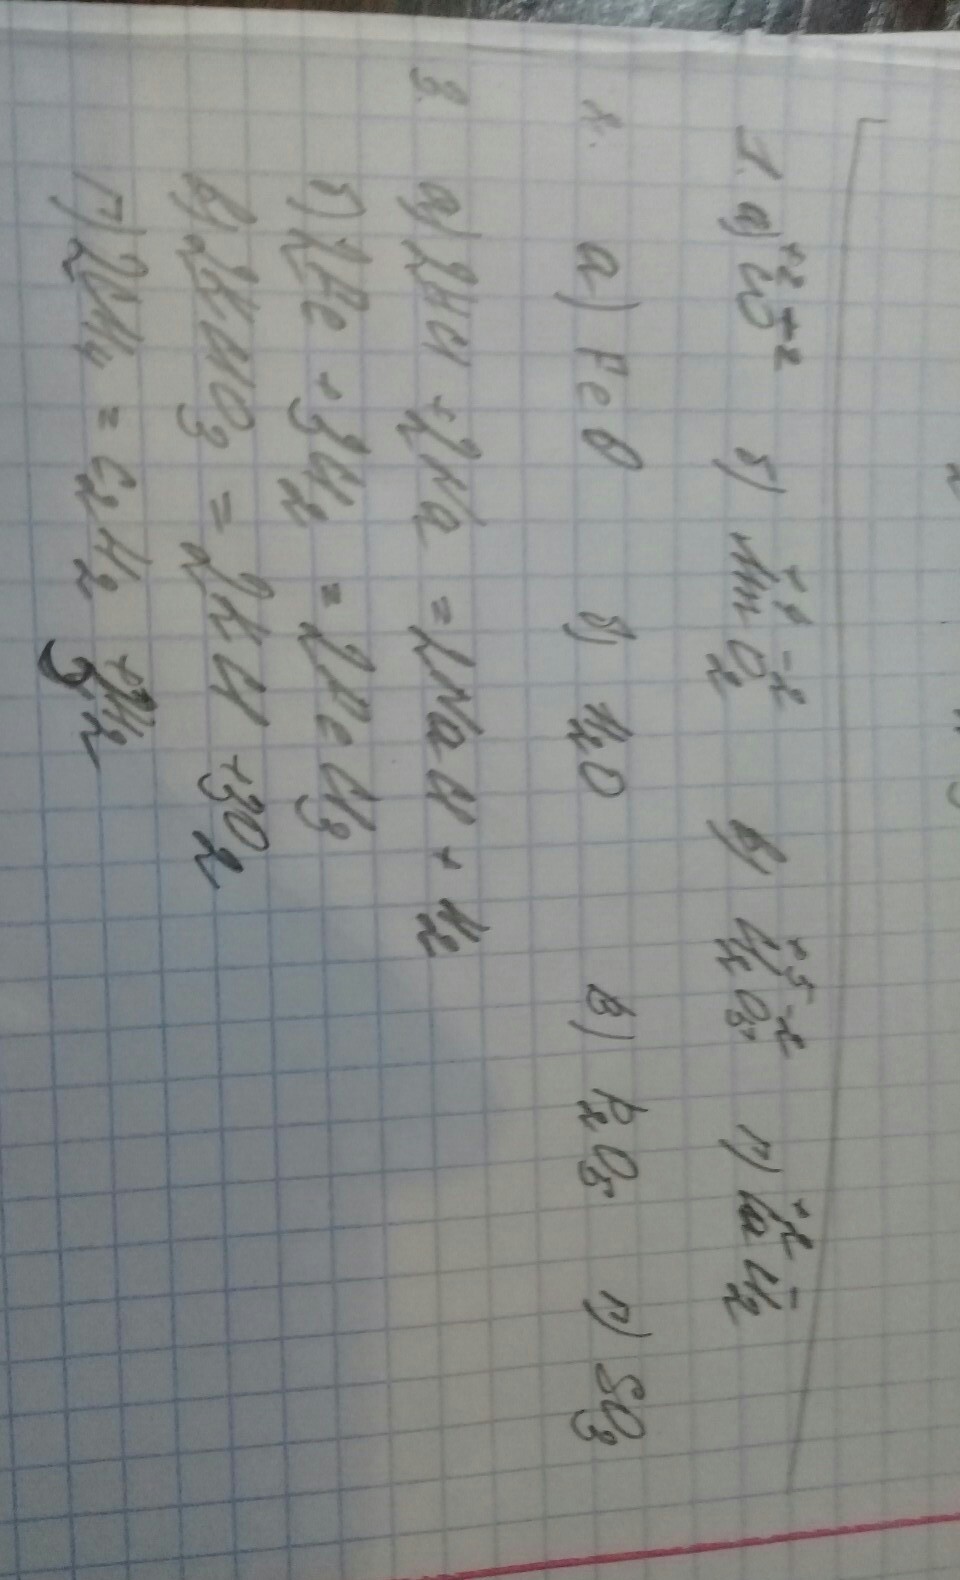 1. а) C⁺²O⁺² б) Mn⁺⁴O₂⁻² в) Cl₂⁺⁵O₅⁻² г) Ca⁺²Cl₂⁻
2. а) FeO б) H₂O в) P₂O₅ г) SO₃
3. а) 2HCl + 2Na = 2NaCl + H₂
б) 2Fe + 3Cl₂ = 2FeCl₃
в) 2KClO₃ = 2KCl + 3O₂
г) 2CH₄ = C₂H₂